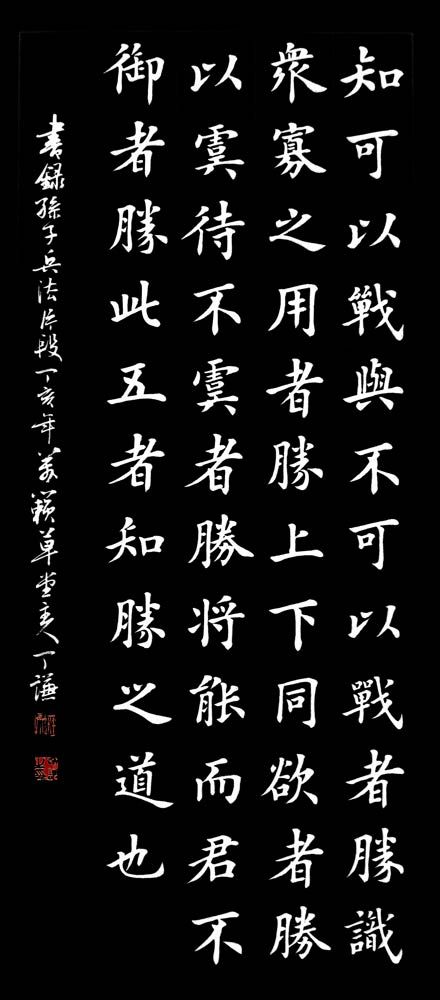 知可以戰與不可以戰者勝識
衆寡之用者勝上下同欲者勝
以虞待不虞者勝将能而君不
御者勝此五者知勝之道也
書録孫子兵法片段丁亥年万籁草堂主人丁謙